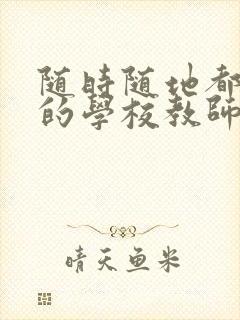 随時随地都
的學校教師
晴天鱼米